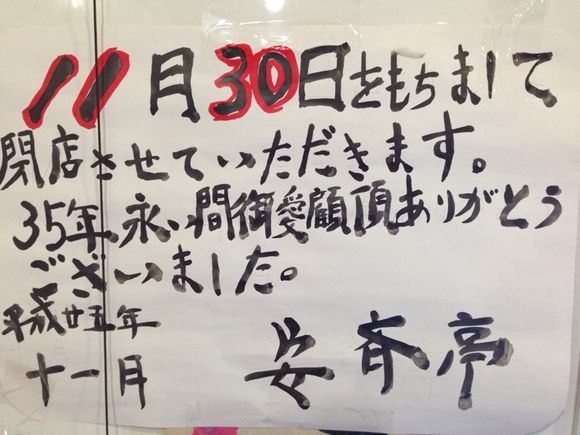 11月30日をもちまして
閉店させていただきます。
35年永い間御愛顧頂ありがとう
ございました。
平成廿五年
十一月
安斉亭